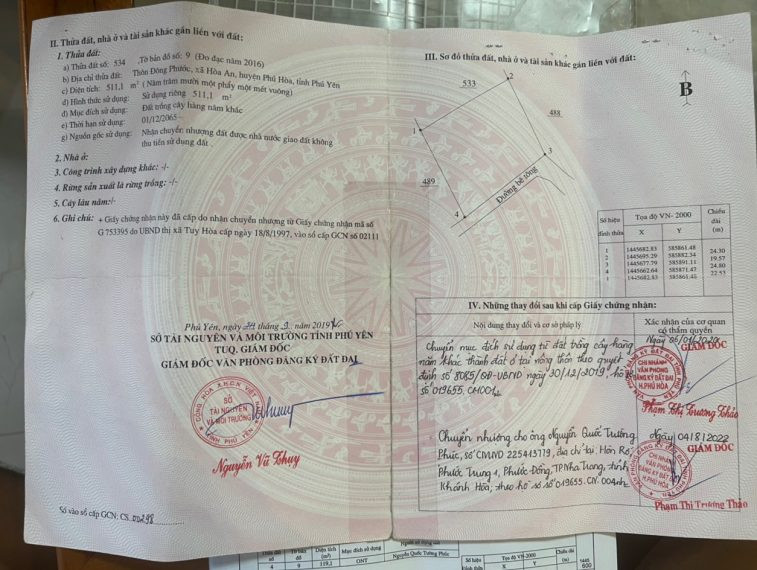 II. Thửa đất, nhà ở và tài sản khác gắn liền với đất:
1. Thửa đất:
a) Thửa đất số: 534 ,Tờ bản đồ số: 9 (Đo đạc năm 2016)
b) Địa chỉ thửa đất: Thôn Đông Phước, xã Hòa An, huyện Phú Hòa, tỉnh Phú Yên
c) Diện tích: 511,1 m² (Năm trăm mười một phẩy một mét vuông)
d) Hình thức sử dụng: Sử dụng riêng 511,1 m²
đ) Mục đích sử dụng: Đất trồng cây hàng năm khác
e) Thời hạn sử dụng: 01/12/2065
g) Nguồn gốc sử dụng: Nhận chuyển nhượng đất được nhà nước giao đất không
thu tiền sử dụng đất .
2. Nhà ở:
3. Công trình xây dựng khác: -/-
4. Rừng sản xuất là rừng trồng: -/-
5. Cây lâu năm:-/-
6. Ghi chú: + Giấy chứng nhận này đã cấp do nhận chuyển nhượng từ Giấy chứng nhận mã số
G 753395 do UBND thị xã Tuy Hòa cấp ngày 18/8/1997, vào sổ cấp GCN số 02111
Phú Yên, ngày tháng 9 năm 2019
SỞ TÀI NGUYÊN VÀ MÔI TRƯỜNG TỈNH PHÚ YÊN
TUQ. GIÁM ĐỐC
GIÁM ĐỐC VĂN PHÒNG ĐĂNG KÝ ĐẤT ĐAI
CỘNG HÒA X.H.C.N VIỆT NAM
SỞ
TÀI NGUYÊN
VÀ MÔI TRƯỜNG
TỈNH PHÚ YÊN
Nguyễn Vũ Thuy
Số vào sổ cấp GCN: CS 00298
III. Sơ đồ thửa đất, nhà ở và tài sản khác gắn liền với đất:
B
533
2
488
1
3
489
4
Đường bê tông
Số hiệu đỉnh thửa Tọa độ VN- 2000 Chiều dài (m)
X Y
1 1445682.83 585861.48
24.30
2 1445695.29 585882.34
19.57
3 1445677.79 585891.11
24.80
4 1445662.64 585871.47
22.53
1 1445682.83 585861.48
IV. Những thay đổi sau khi cấp Giấy chứng nhận:
Nội dung thay đổi và cơ sở pháp lý
Xác nhận của cơ quan
có thẩm quyền
Chuyển mục đích sử dụng từ đất trồng cây hàng
năm khác thành đất ở tại nông thôn theo quyết
định số 8085/QĐ-UBND ngày 30/12/2019, hồ sơ
số 019655.CM001
GIÁM ĐỐC
CHI NHÁNH
VĂN PHÒNG
ĐĂNG KÝ ĐẤT ĐAI
H.PHÚ HÒA
Phạm Thị Trương Thảo
- Chuyển nhượng cho ông Nguyễn Quốc Trường
Phúc, số CMND 225413779, địa chỉ tại: Hòn Rớ,
Phước Trung 1, Phước Đồng, TP Nha Trang, tỉnh
Khánh Hòa, theo hồ sơ số 019655.CN.004
Ngày 04/8/2022
GIÁM ĐỐC
CHI NHÁNH
VĂN PHÒNG
ĐĂNG KÝ ĐẤT ĐAI
H.PHÚ HÒA
Phạm Thị Trương Thảo
Thửa đất số Tờ bản đồ Diện tích (m²) Mục đích sử dụng
Nguyễn Quốc Tường Phúc
Số hiệu Tọa độ VN-2000 Chiều dài (m)
4 9 119,1 ONT
X Y
600